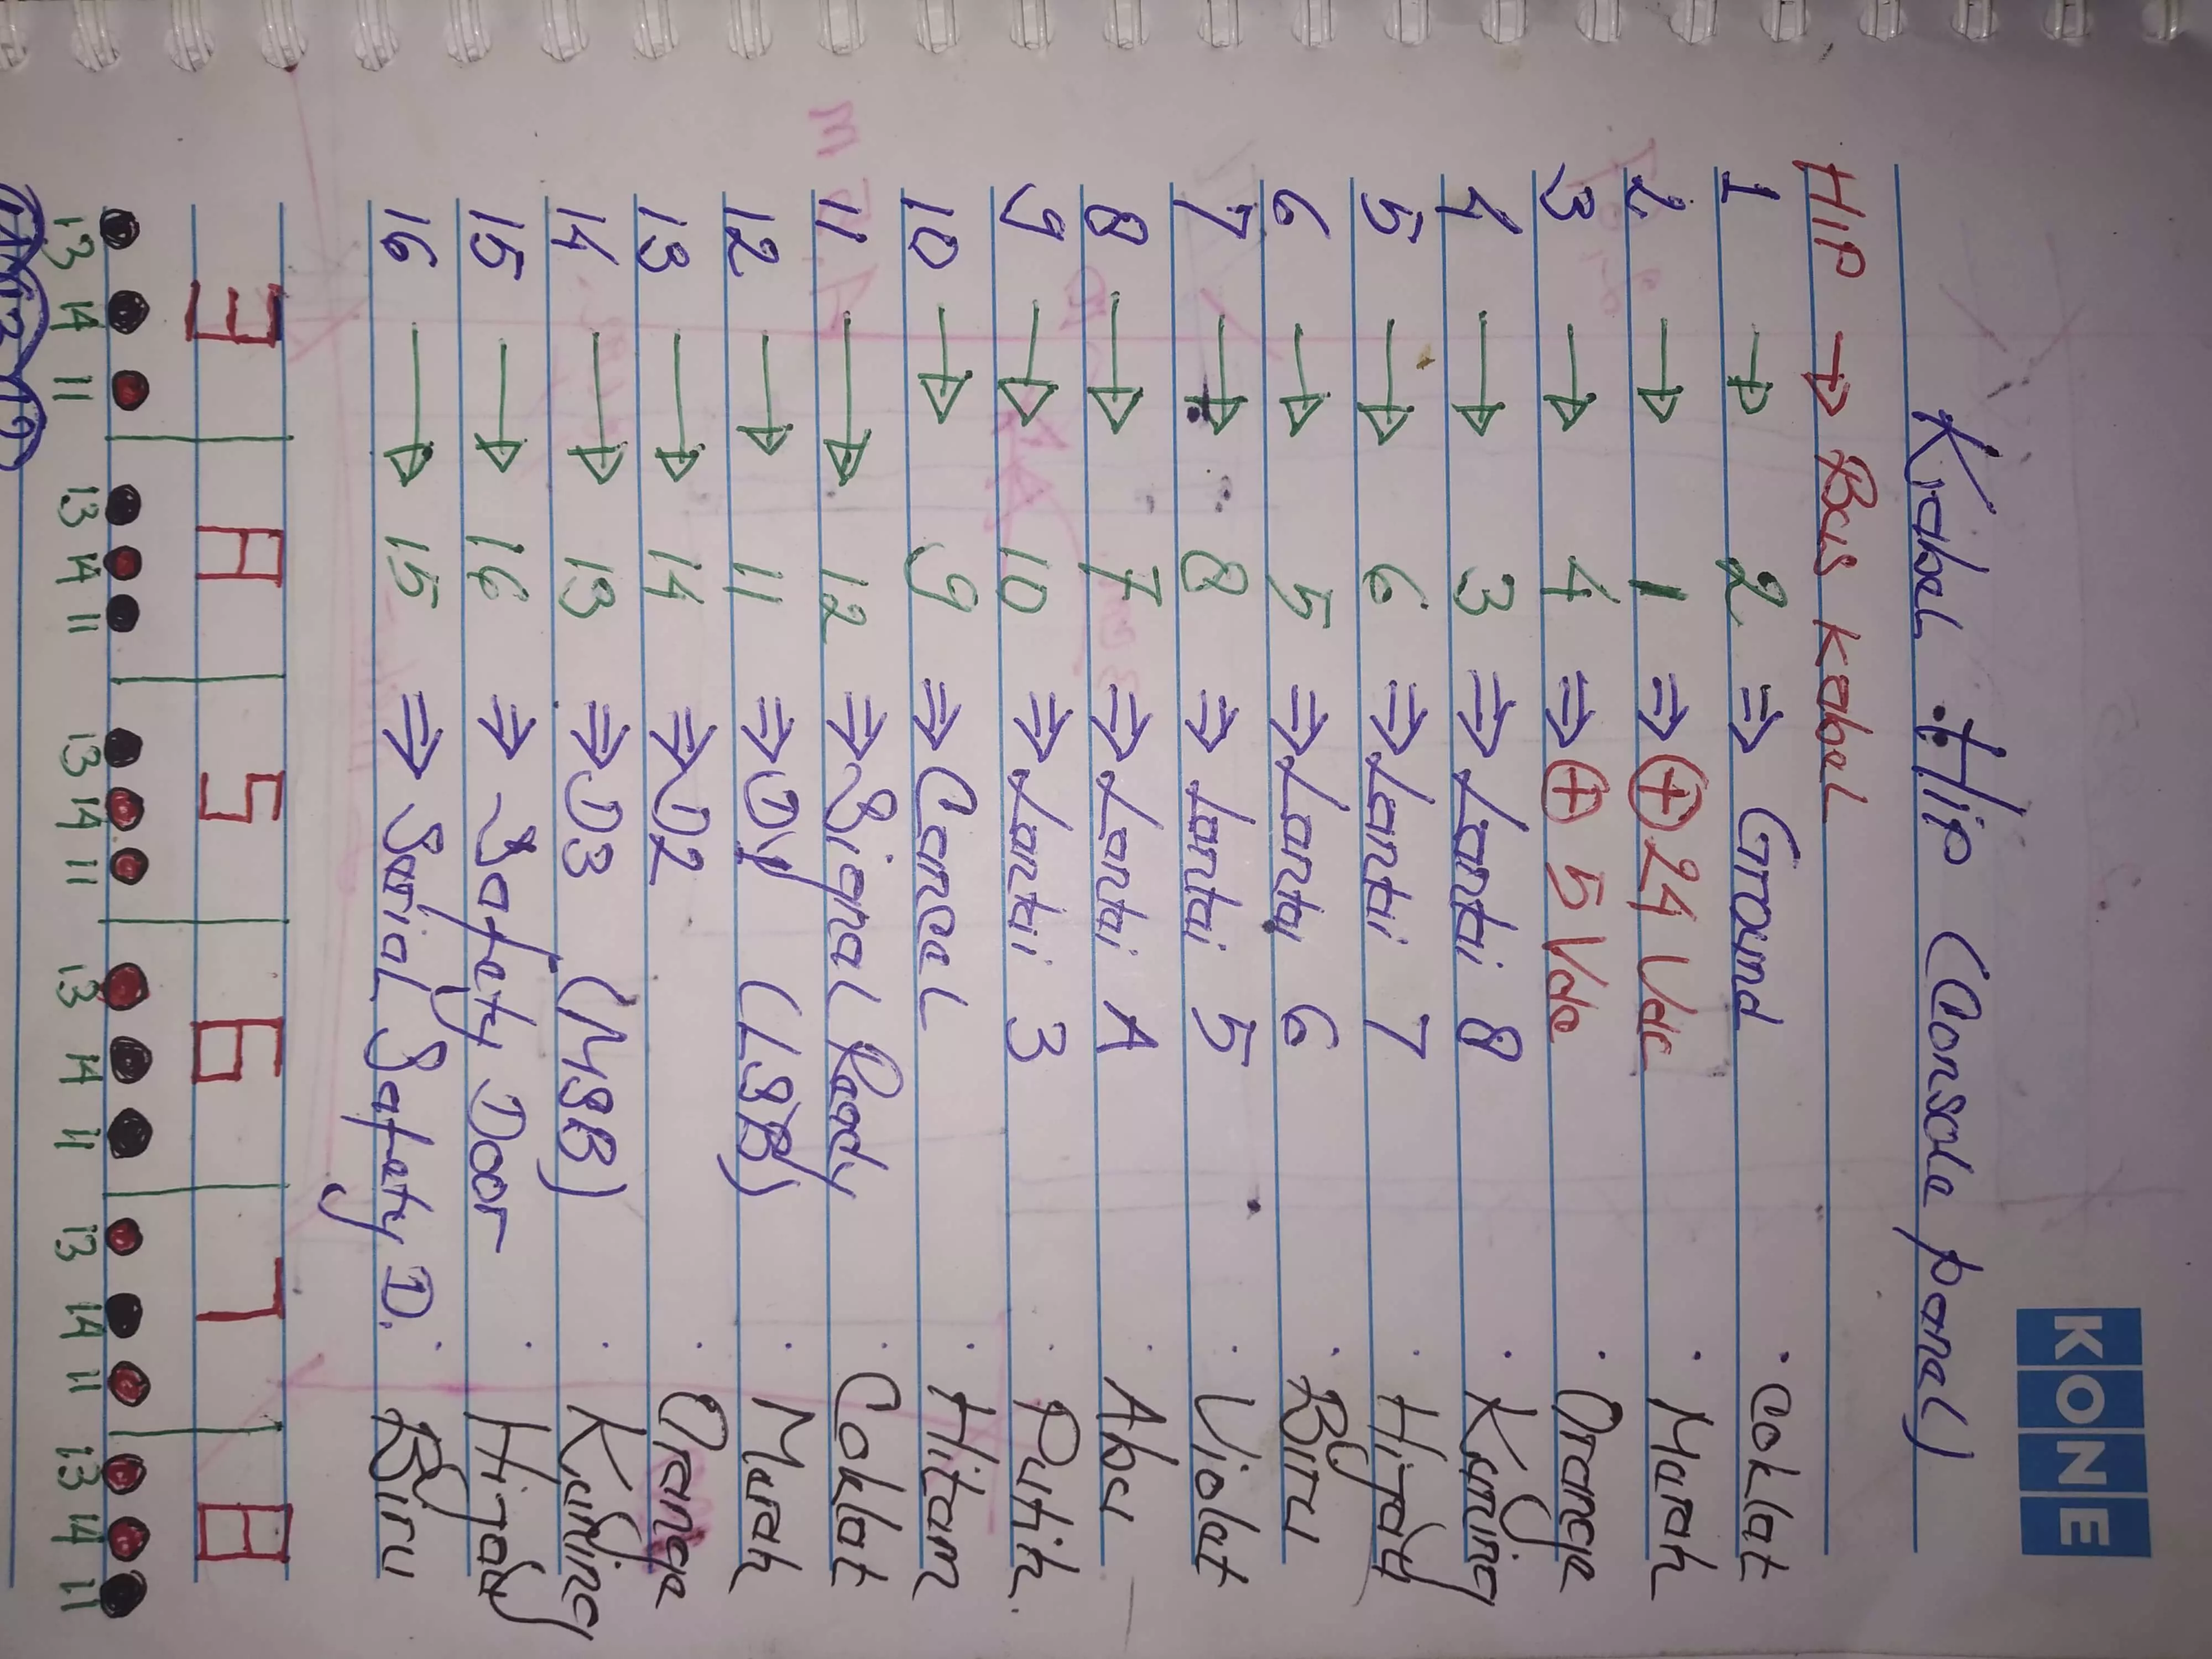 KONE
Kabel Hip (Console panel)
HIP → Bus Kabel
1 → 2 ⇒ Ground . Coklat
2 → 1 ⇒ ⊕ 24 Vdc . Merah
3 → 4 ⇒ ⊕ 5 Vdc . Orange
4 → 3 ⇒ Lantai 8 . Kuning
5 → 6 ⇒ Lantai 7 . Hijau
6 → 5 ⇒ Lantai 6 . Biru
7 → 8 ⇒ Lantai 5 . Violet
8 → 7 ⇒ Lantai A . Abu
9 → 10 ⇒ Lantai 3 . Putih
10 → 9 ⇒ Cancel . Hitam
11 → 12 ⇒ Signal Ready . Coklat
12 → 11 ⇒ D1 (LSB) . Merah
13 → 14 ⇒ D2 . Orange
14 → 13 ⇒ D3 (MSB) . Kuning
15 → 16 ⇒ Safety Door . Hijau
16 → 15 ⇒ Serial Safety D. . Biru
3 A 5 6 7 8
13 14 11 13 14 11 13 14 11 13 14 11 13 14 11 13 14 11